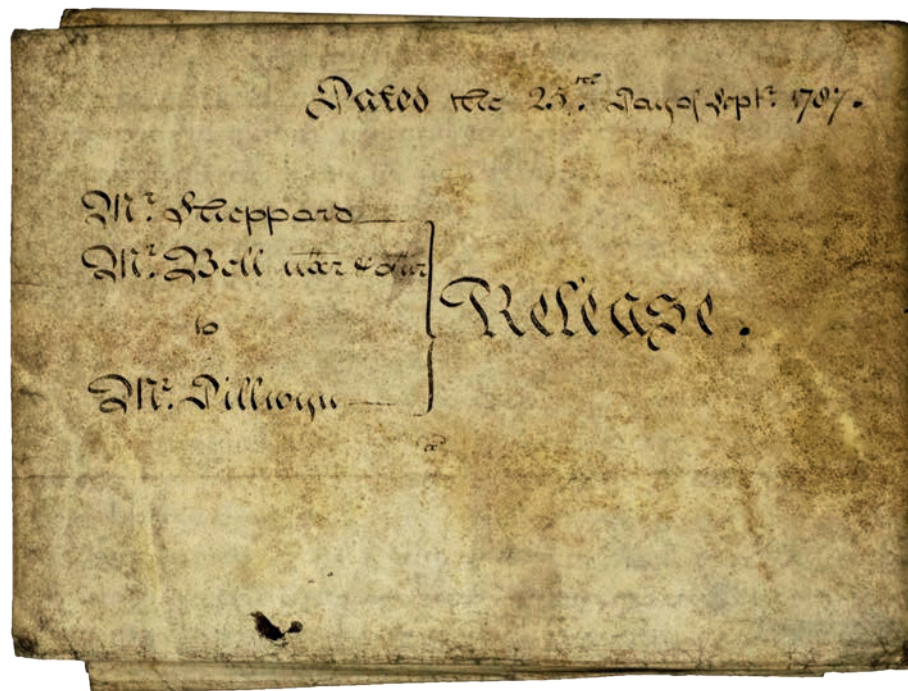 Dated the 25.th Day of Sept.r 1787.
Mr. Sheppard
Mr. Bell uxr & our
to
Mr. Dillwyn
Release.